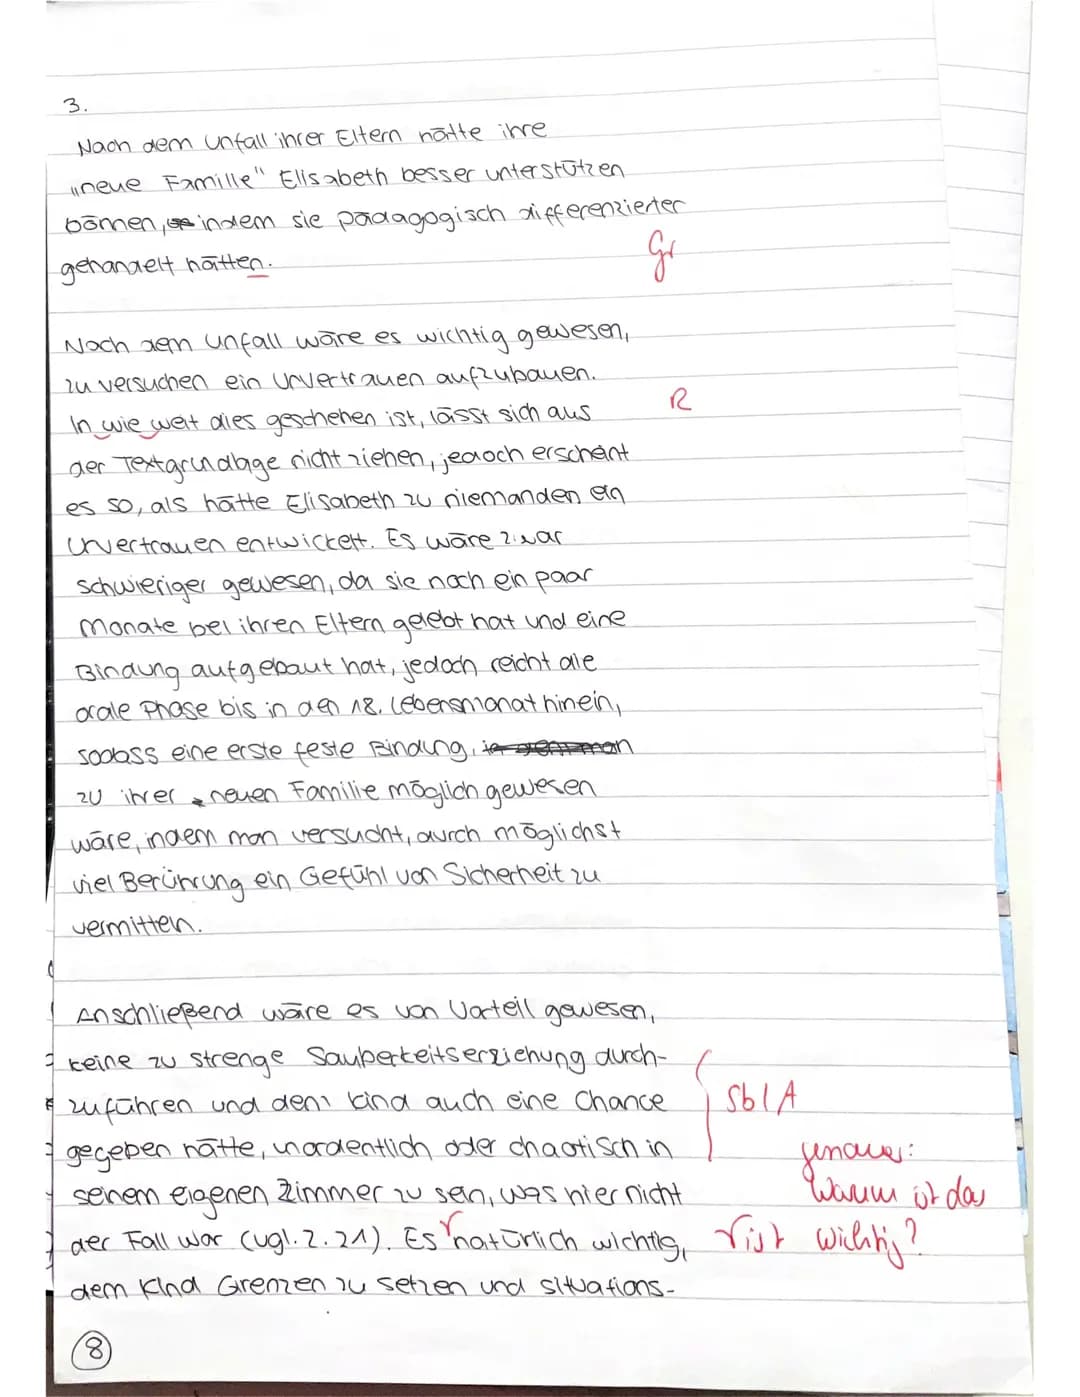 3.
Nach dem Unfall ihrer Eltern hätte ihre
„neue Familie" Elisabeth besser unterstützen
können, indem sie pädagogisch differenzierter
gehandelt hätten.
Gr
Nach dem Unfall wäre es wichtig gewesen,
zu versuchen ein Urvertrauen aufzubauen.
In wie weit dies geschehen ist, lässt sich aus
R
der Textgrundlage nicht ziehen, jedoch erscheint
es so, als hätte Elisabeth zu niemanden ein
Urvertrauen entwickelt. Es wäre zwar
schwieriger gewesen, da sie noch ein paar
Monate bei ihren Eltern gelebt hat und eine
Bindung aufgebaut hat, jedoch reicht die
orale Phase bis in den 18. Lebensmonat hinein,
sodass eine erste feste Bindung
zu ihrer neuen Familie möglich gewesen
wäre, indem man versucht, durch möglichst
viel Berührung ein Gefühl von Sicherheit zu
vermitteln.
Anschließend wäre es von Vorteil gewesen,
keine zu strenge Sauberkeitserziehung durch-
zuführen und dem Kind auch eine Chance
Sb/A
gegeben hätte, unordentlich oder chaotisch in
genauer:
seinem eigenen Zimmer zu sein, was hier nicht
Warum ist das
der Fall war (vgl. Z. 21). Es natürlich wichtig,
ist wichtig?
dem Kind Grenzen zu setzen und situations-
8